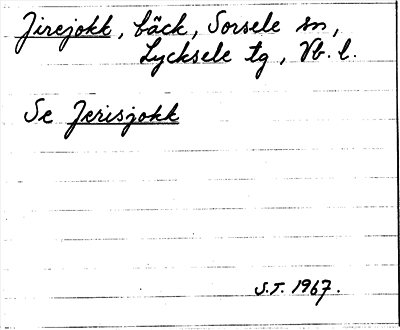 Jirejokk, bäck, Sorsele sn,
Lycksele tg, Vb. l.
Se Jerisjokk
S.T. 1967.